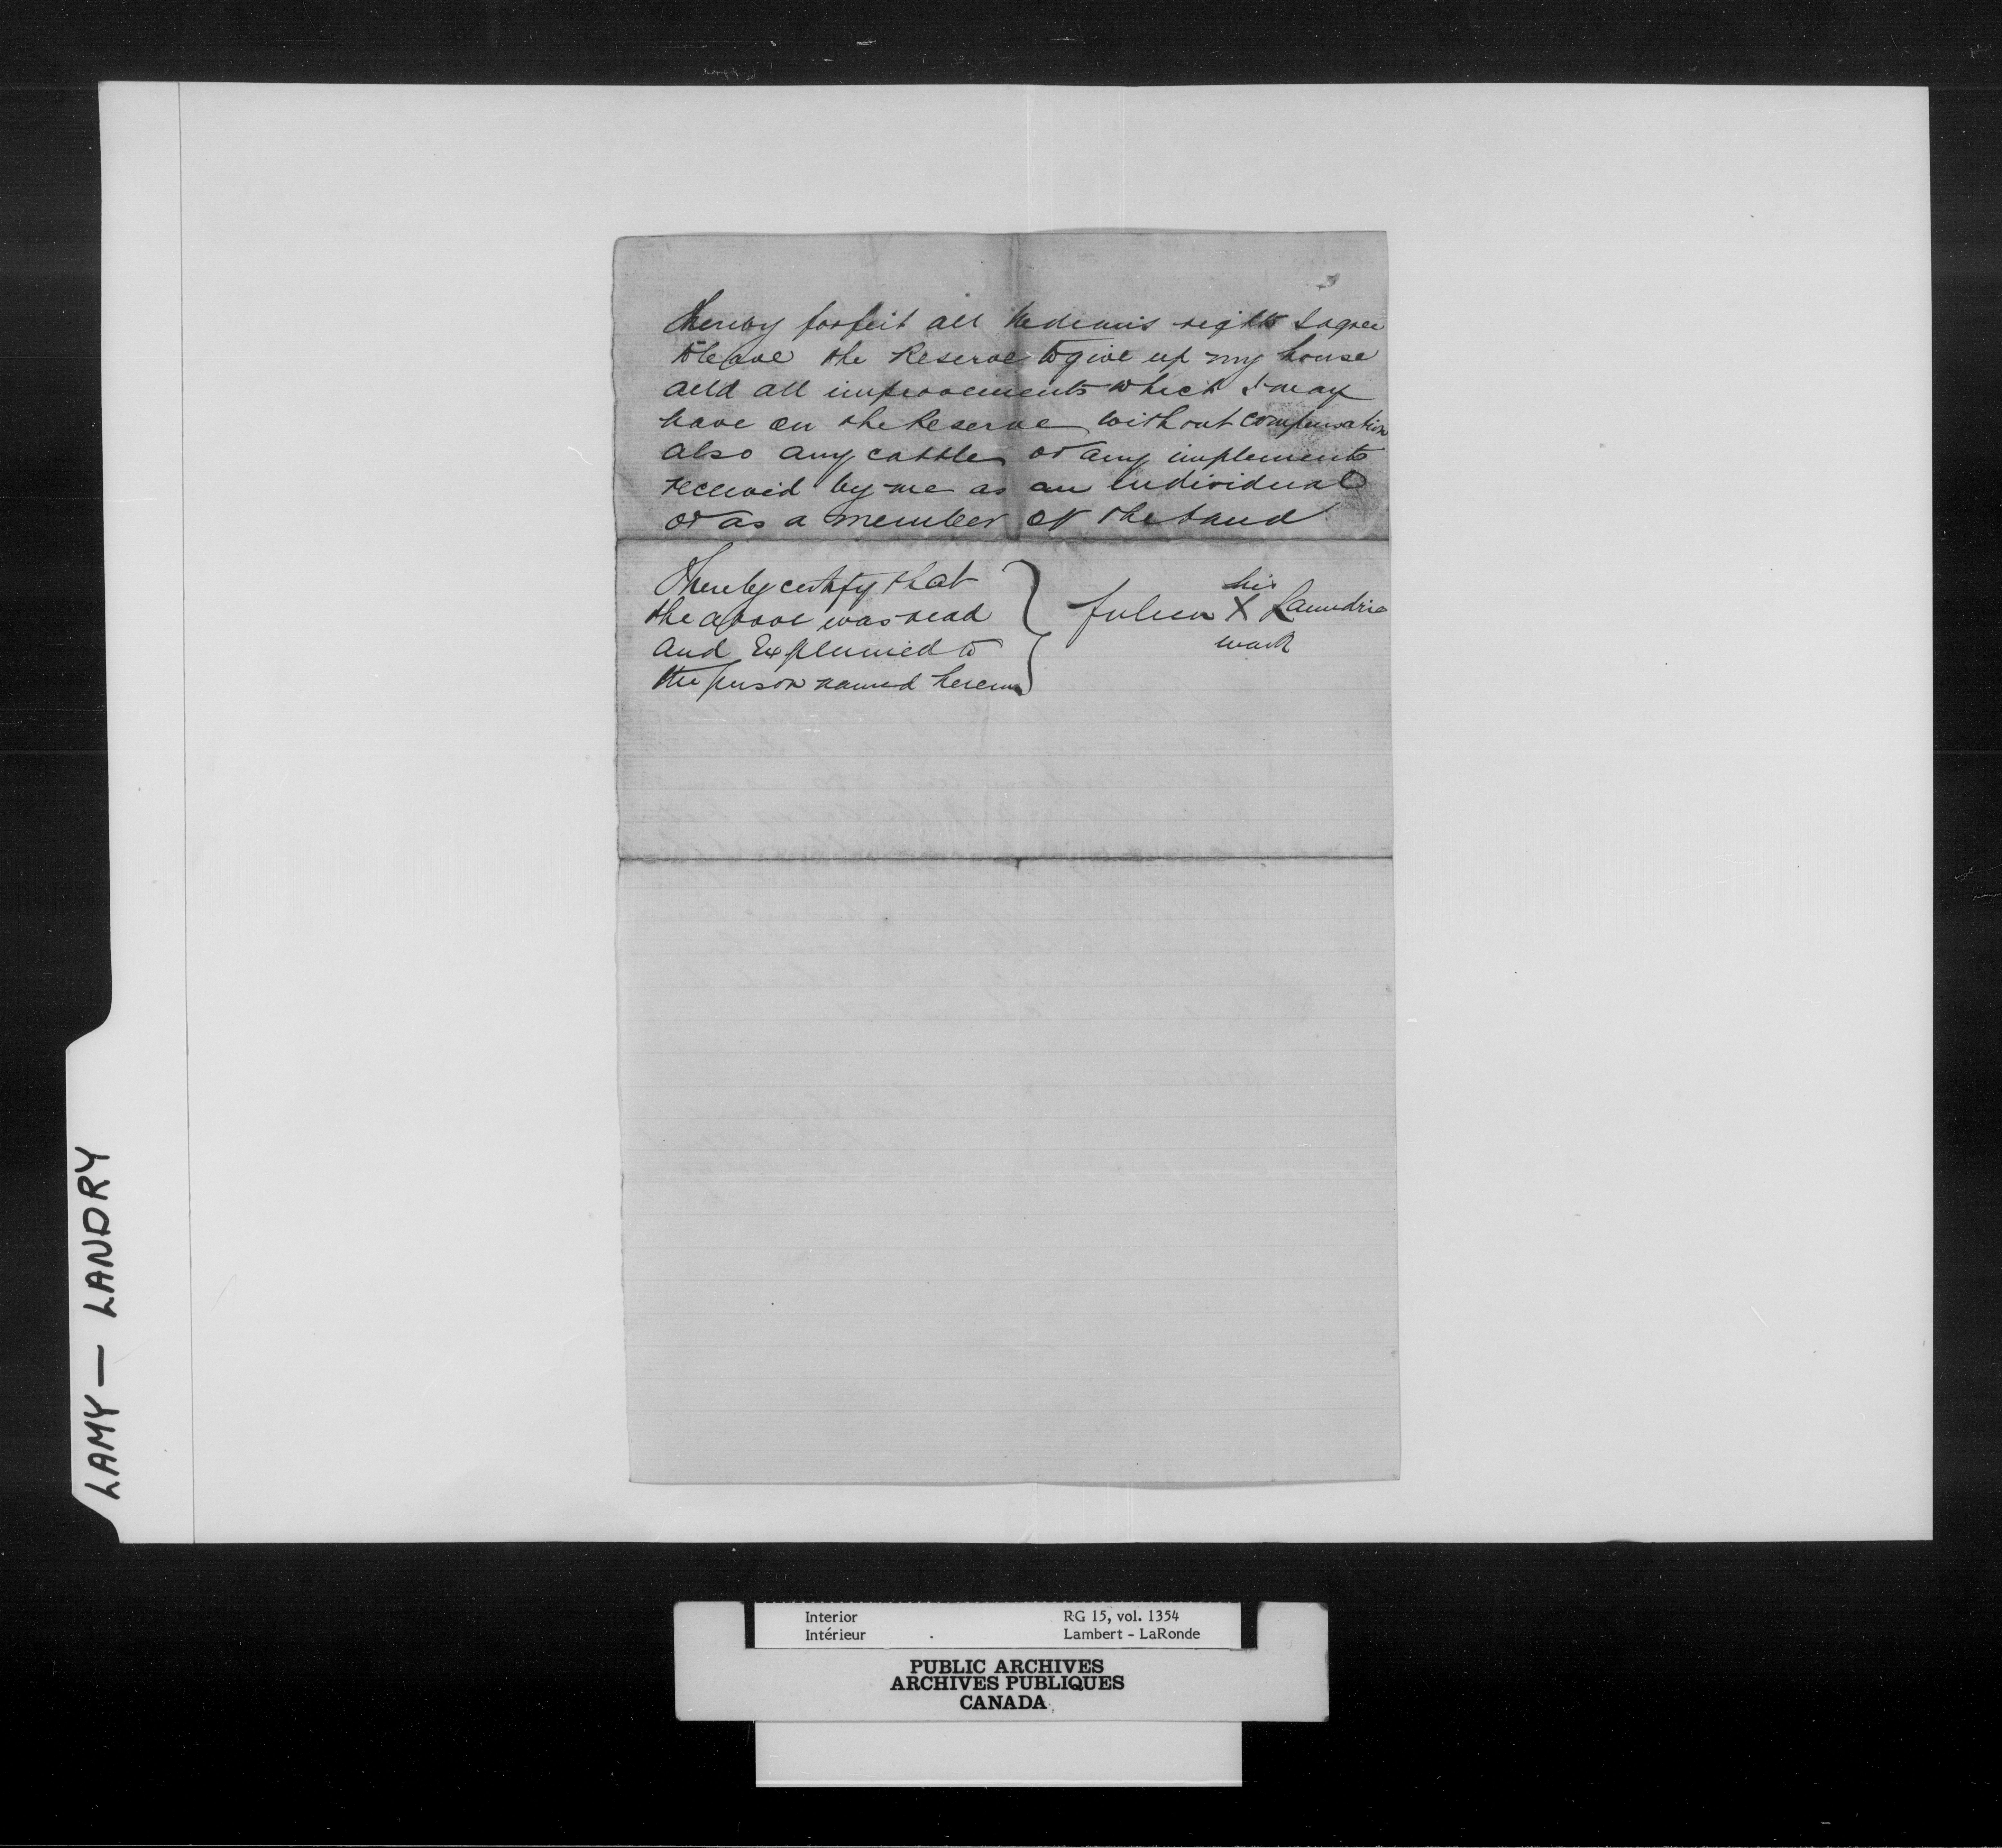 3
thereby forfeit all Indians rights I agree
to leave the Reserve to give up my house
and all improvements which I may
have on the Reserve without compensation
also any cattle or any implements
received by me as an individual
or as a member of the band
I hereby certify that
the above was read
and Explained to
the person named herein
Julien his X mark Laundrie
LAMY — LANDRY
Interior RG 15, vol. 1354
Intérieur Lambert - LaRonde
PUBLIC ARCHIVES
ARCHIVES PUBLIQUES
CANADA